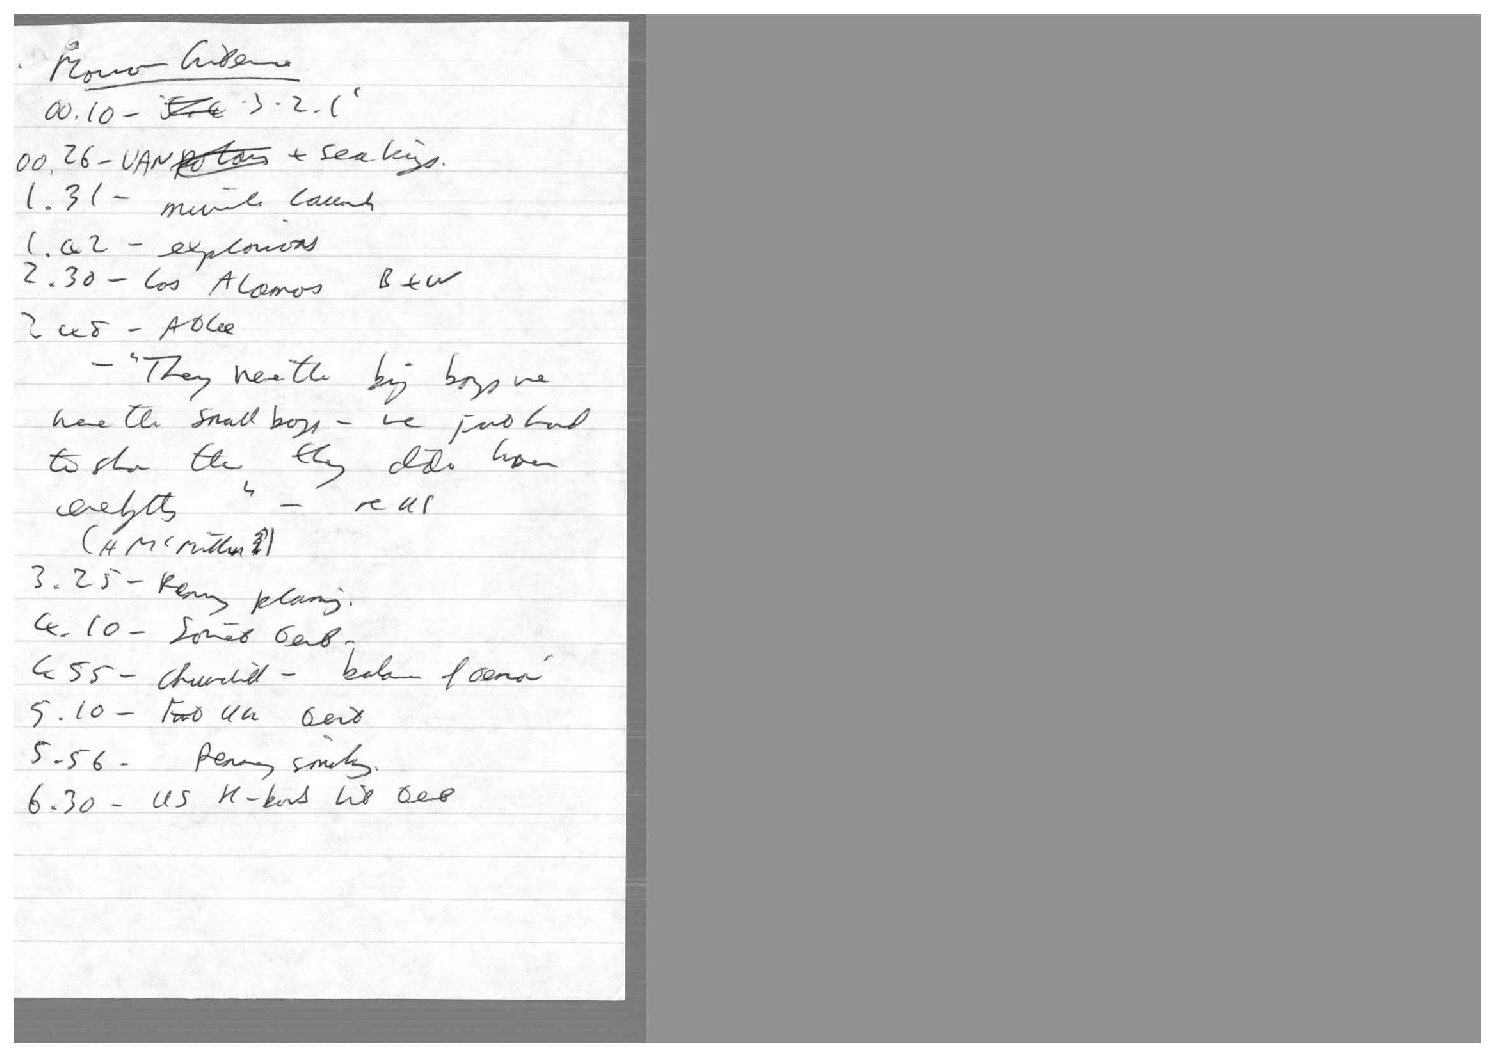 00.10 - 3.2.1'
00.26 - VAN + Sea kings.
1.31 - missile launch
1.42 - explosions
2.30 - Los Alamos B+W
2 45 - Atlee
- "They were the big boys we
were the small boys - we just had
to show them they didn't know
everything" - re US
(H McMillan?)
3.25 - Penny planning.
4.10 - Soviet test -
4 55 - Churchill - balance of terror'
5.10 - First UK test
5.56 - Penny smoking.
6.30 - US H-bomb test